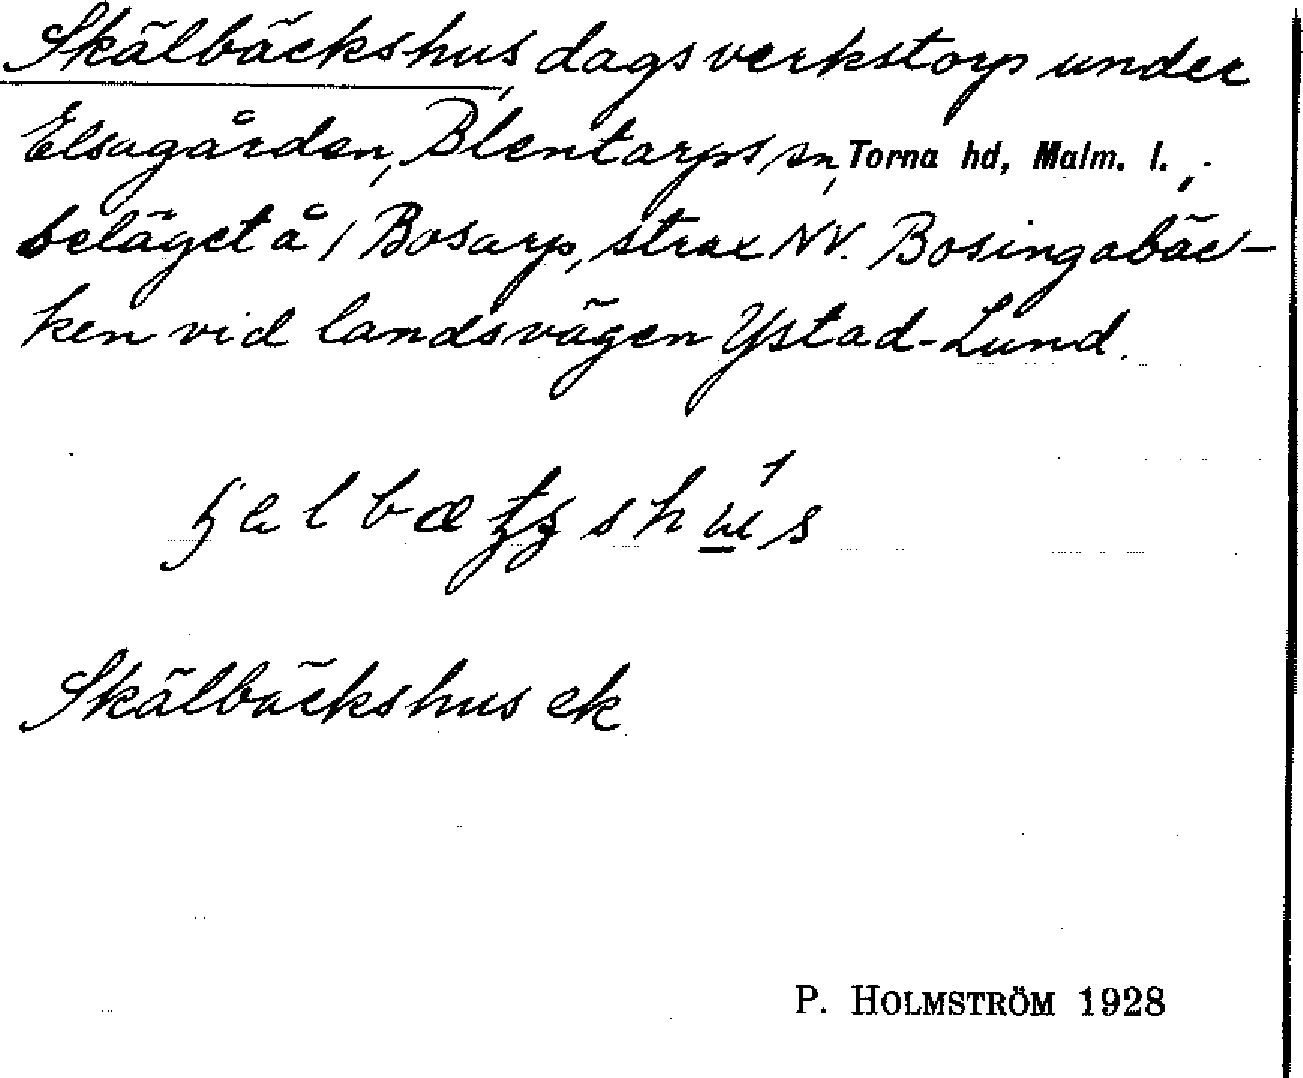 Skälbäckshus, dagsverkstorp under
Elsagården, Blentarps sn, Torna hd, Malm. l.,
beläget å 1 Bosarp, strax NV. Bosingabäc-
ken vid landsvägen Ystad-Lund.
Skälbäckshus ek
P. HOLMSTRÖM 1928